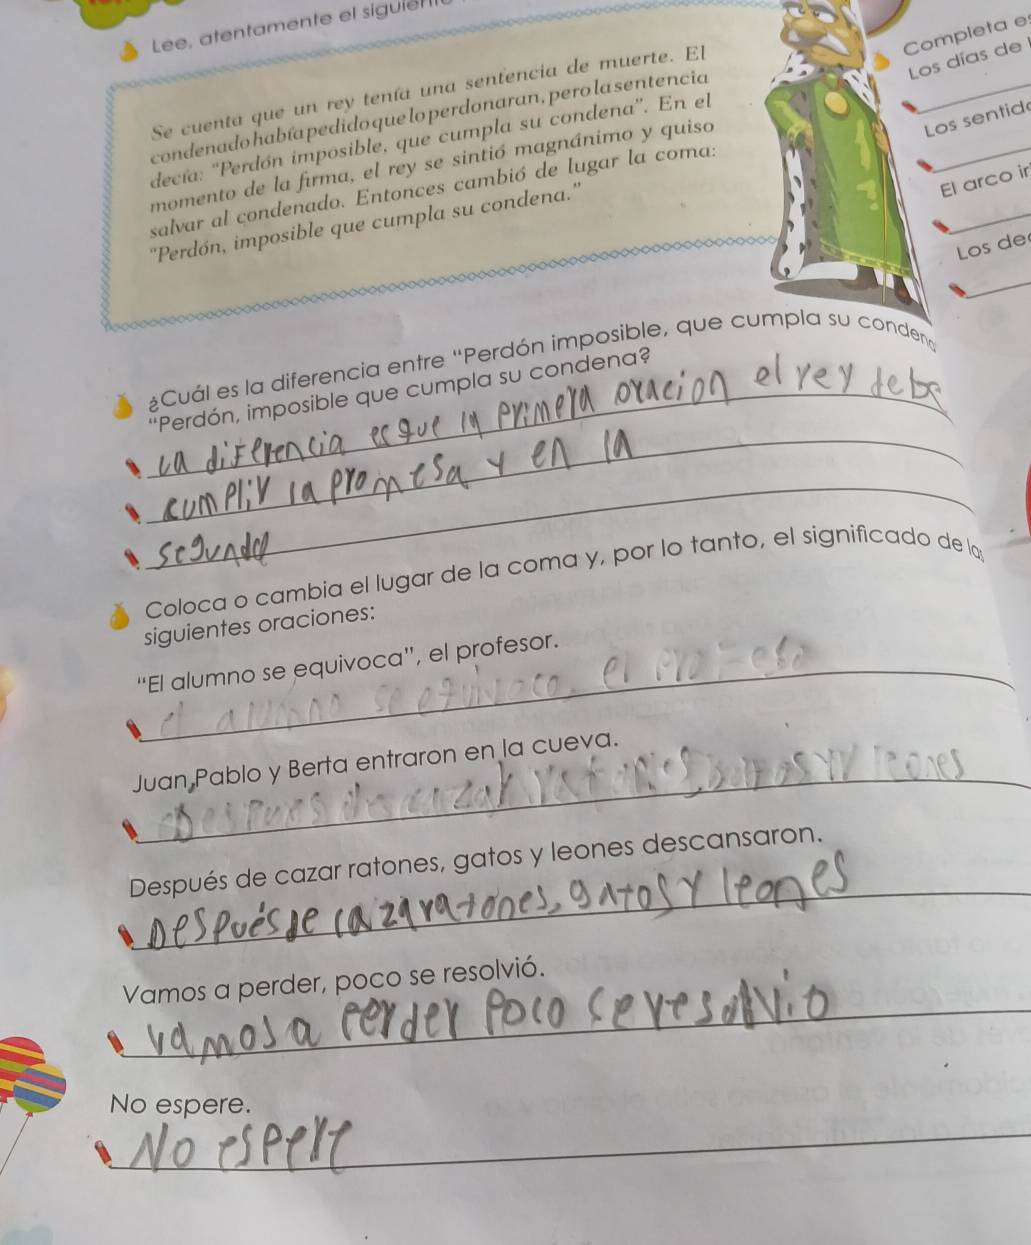 Lee, atentamente el
Se cuenta que un rey tenía una sentencia de muerte. El
condenado había pedido que lo perdonaran, pero la sentencia
decía: "Perdón imposible, que cumpla su condena". En el
momento de la firma, el rey se sintió magnánimo y quiso
salvar al condenado. Entonces cambió de lugar la coma:
"Perdón, imposible que cumpla su condena."
Completa
Los días de
Los
El arco
Los
¿Cuál es la diferencia entre "Perdón imposible, que cumpla su
"Perdón, imposible que cumpla su condena?
La diferencia es que la primera oracion el rey debe
cumplir la promesa y en la
segunda
Coloca o cambia el lugar de la coma y, por lo tanto, el significado de
siguientes oraciones:
"El alumno se equivoca", el profesor.
el alumno se equivoco, el
Juan,Pablo y Berta entraron en la cueva.
Despues de cazar leones
Después de cazar ratones, gatos y leones descansaron.
Después de cazar ratones, gatos y leones
Vamos a perder, poco se resolvió.
vamos a perder poco se resolvio
No espere.
No espere